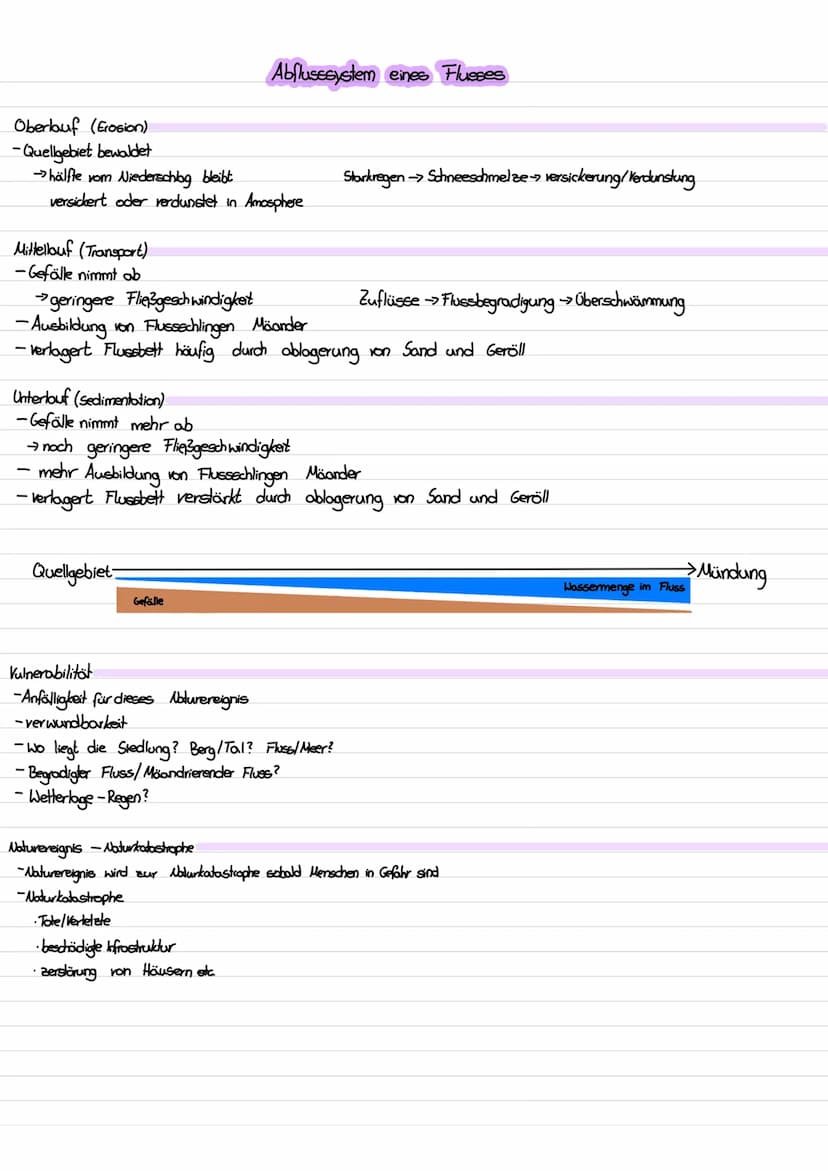 Abflusssystem eines Flusses
Oberlauf (Erosion)
- Quellgebiet bewaldet
→ hälfte vom Niederschlag bleibt
Starkregen → Schneeschmelze → versickerung/Verdunstung
versickert oder verdunstet in Amosphere
Mittellauf (Transport)
- Gefälle nimmt ab
→ geringere Fließgeschwindigkeit
Zuflüsse → Flussbegradigung → Überschwämmung
- Ausbildung von Flussschlingen Mäander
- verlagert Flussbett häufig durch ablagerung von Sand und Geröll
Unterlauf (Sedimentation)
- Gefälle nimmt mehr ab
→ noch geringere Fließgeschwindigkeit
- mehr Ausbildung von Flussschlingen Mäander
- verlagert Flussbett verstärkt durch ablagerung von Sand und Geröll
Quellgebiet → Mündung
Wassermenge im Fluss
Gefälle
Vulnerabilität
- Anfälligkeit für dieses Naturereignis
- verwundbarkeit
- Wo liegt die Siedlung? Berg/Tal? Fluss/Meer?
- Begradigter Fluss/Mäandrierender Fluss?
- Wetterlage - Regen?
Naturereignis - Naturkatastrophe
- Naturereignis wird zur Naturkatastrophe sobald Menschen in Gefahr sind
- Naturkatastrophe
· Tote/Verletzte
· beschädigte Infrostruktur
· zerstörung von Häusern etc.